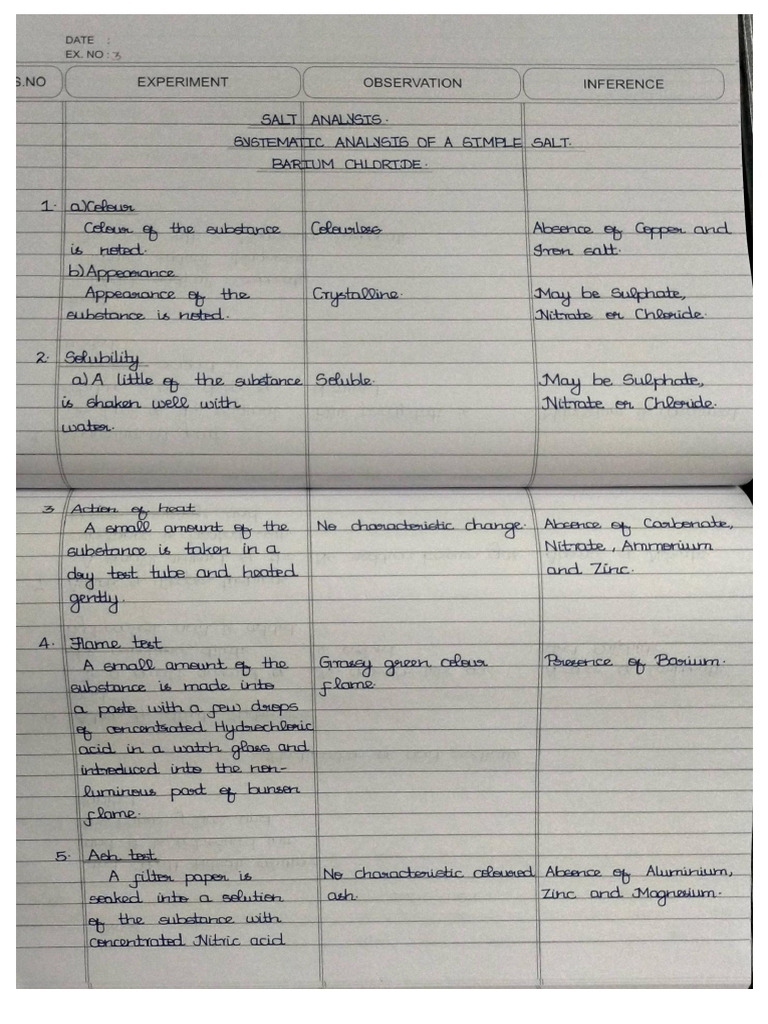 DATE :
EX. NO : 3
S.NO EXPERIMENT OBSERVATION INFERENCE
SALT ANALYSIS.
SYSTEMATIC ANALYSIS OF A SIMPLE SALT.
BARIUM CHLORIDE.
1. a) Colour
Colour of the substance Colourless Absence of Copper and
is noted. Iron salt.
b) Appearance
Appearance of the Crystalline. May be Sulphate,
substance is noted. Nitrate or Chloride.
2. Solubility
a) A little of the substance Soluble. May be Sulphate,
is shaken well with Nitrate or Chloride.
water.
3 Action of heat
A small amount of the No characteristic change. Absence of Carbonate,
substance is taken in a Nitrate, Ammonium
dry test tube and heated and Zinc.
gently.
4. Flame test
A small amount of the Grassy green colour Presence of Barium.
substance is made into flame.
a paste with a few drops
of concentrated Hydrochloric
acid in a watch glass and
introduced into the non-
luminous part of bunsen
flame.
5. Ash test
A filter paper is No characteristic coloured Absence of Aluminium,
soaked into a solution ash. Zinc and Magnesium.
of the substance with
concentrated Nitric acid